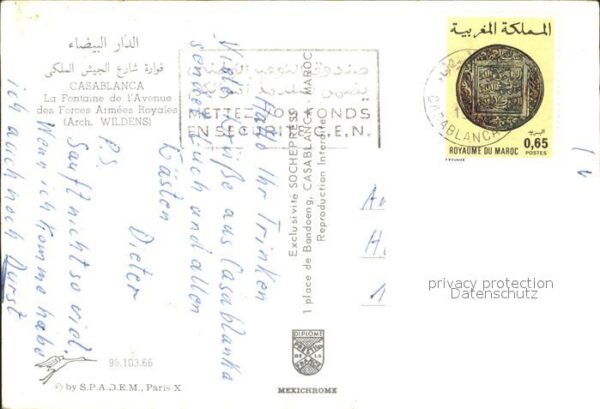 الدار البيضاء
فوارة شارع الجيش الملكي
CASABLANCA
La Fontaine de l'Avenue
des Forces Armées Royales
(Arch. WILDENS)
صندوق التوفير الوطني
METTEZ VOS FONDS
EN SECURITE C.E.N.
المملكة المغربية
البريد
0,65
ROYAUME DU MAROC
POSTES
CASABLANCA
Hallo Ihr Trinken
Viele Grüße aus Casablanka
sendet Euch und allen
Gästen
Dieter
P.S.
Sauft nicht so viel.
Wenn ich komme habe
ich auch noch Durst
Exclusivité SOCHEPRESS
1 place de Bandoeng, CASABLANCA, MAROC
Reproduction Interdite
privacy protection
Datenschutz
95.103.66
© by S.P.A.D.E.M., Paris X
DIPLOME
PRESTIGE
DE LA
FRANCE
MEXICHROME